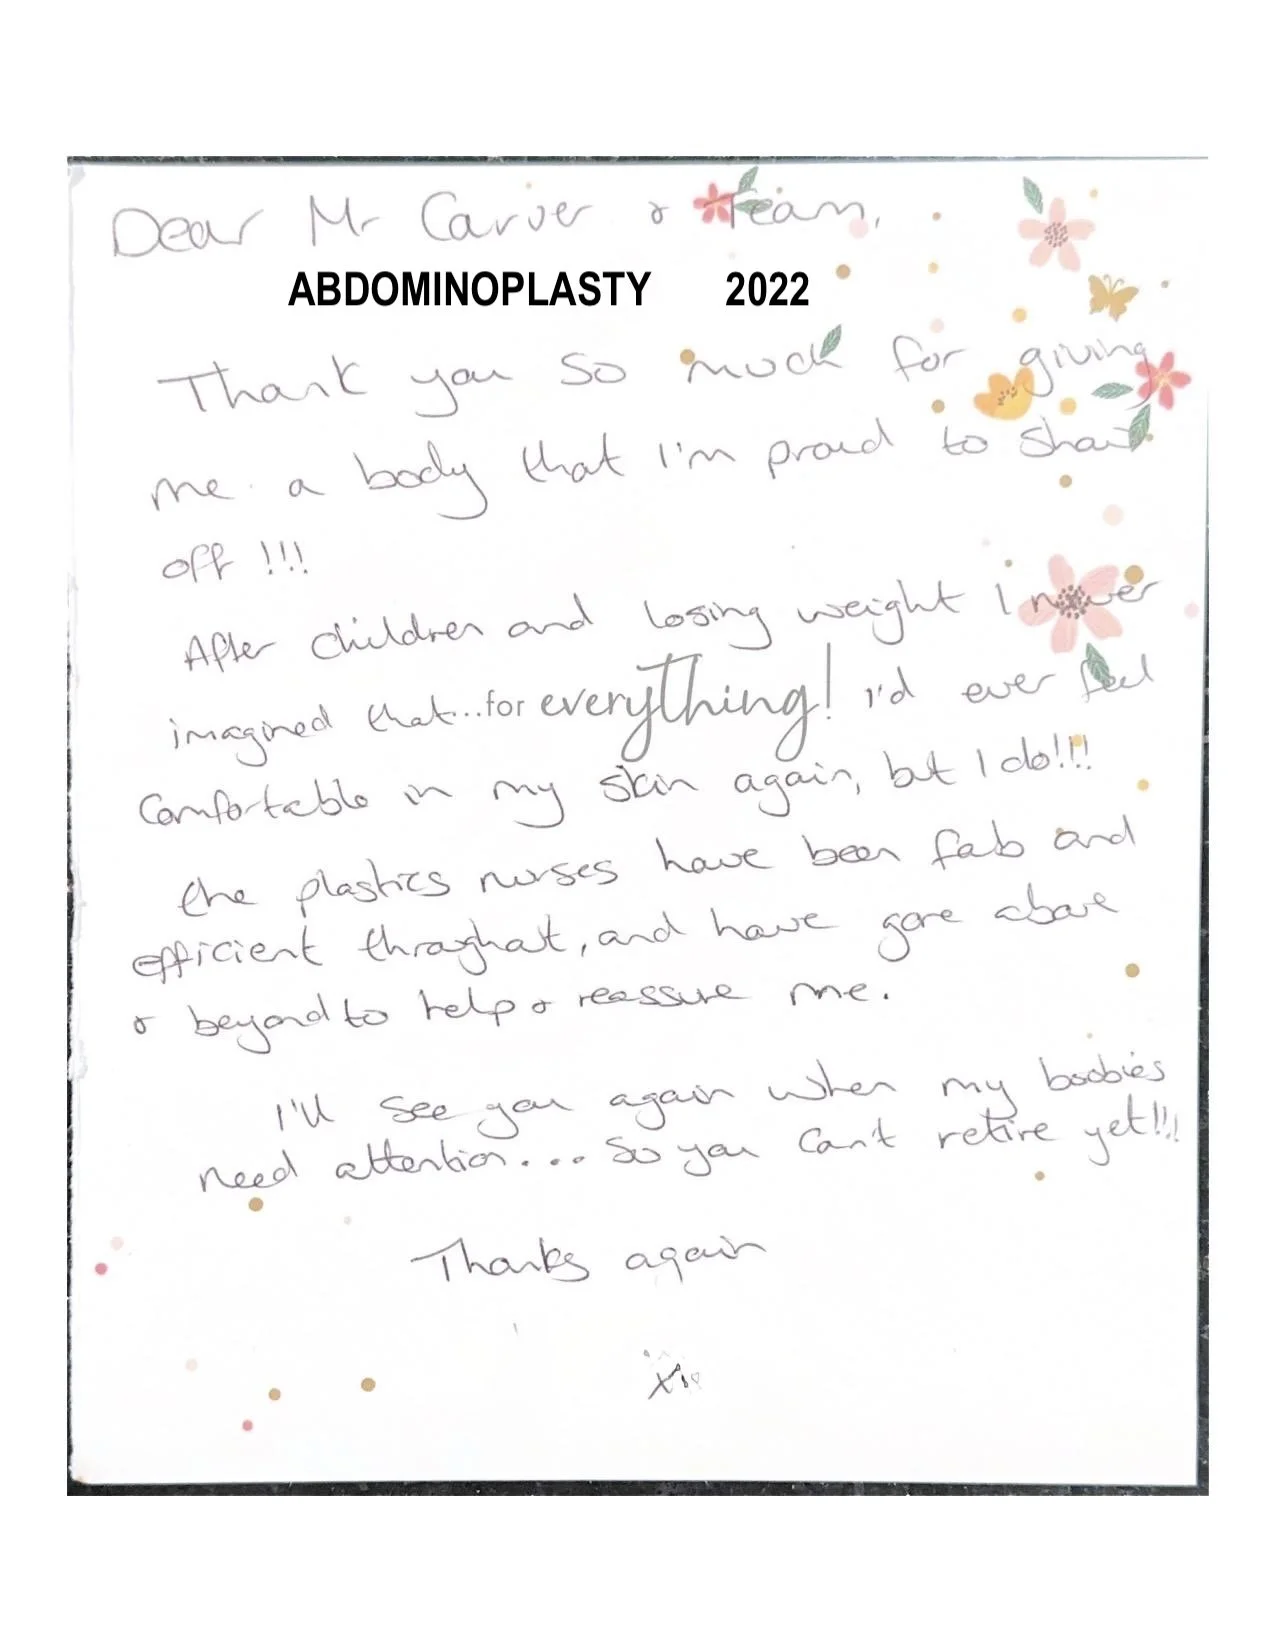 Dear Mr Carver & Team,
ABDOMINOPLASTY 2022
Thank you so much for giving
me a body that I'm proud to show
off !!!
After children and losing weight I never
imagined that...for everything! I'd ever feel
comfortable in my skin again, but I do!!!
the plastics nurses have been fab and
efficient throughout, and have gone above
& beyond to help & reassure me.
I'll see you again when my boobies
need attention.... so you can't retire yet!!!
Thanks again